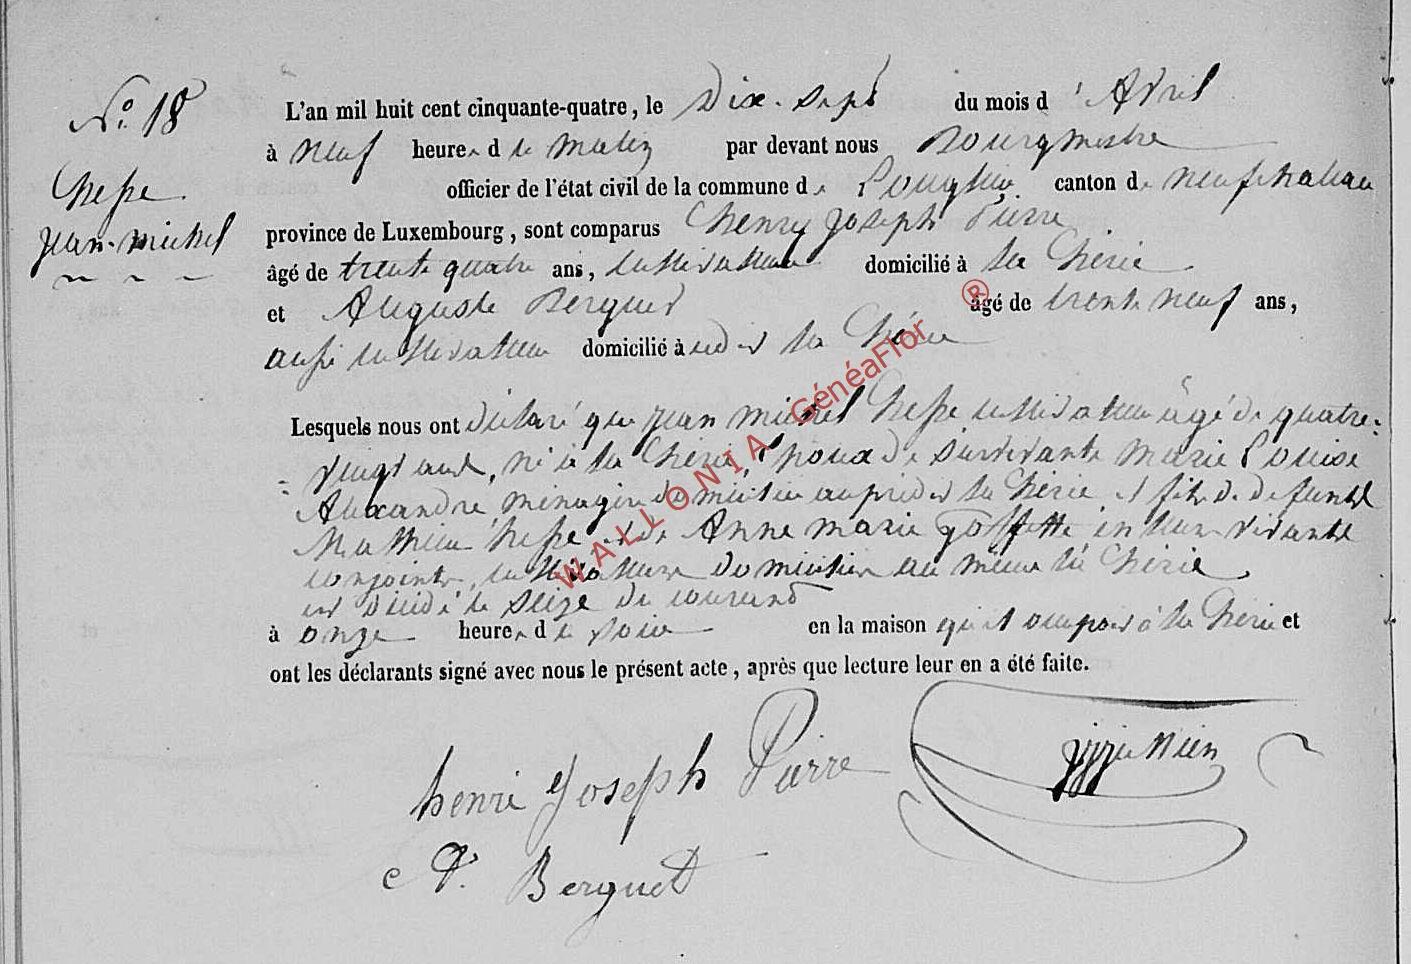 N° 18
Hesse
Jean-Michel
L'an mil huit cent cinquante-quatre, le Dix-Sept du mois d'Avril
à neuf heures du matin par devant nous Bourgmestre
officier de l'état civil de la commune de Longlier canton de neufchateau
province de Luxembourg, sont comparus henry joseph Pierre
âgé de trente quatre ans, cultivateur domicilié à la
et Auguste Berguet âgé de trente neuf ans,
aussi cultivateur domicilié à
Lesquels nous ont déclaré que jean michel cultivateur âgé de quatre-
vingt ans, né à la époux de survivante marie Louise
Alexandre, ménagère domiciliée et fils de défunts
Mathieu et de Anne marie Goffette en leur vivants
conjoints, cultivateurs domiciliés au même
est décédé le seize du courant
à onze heures du soir en la maison qu'il occupait à la et
ont les déclarants signé avec nous le présent acte, après que lecture leur en a été faite.
henri Joseph Pierre
A. Berguet
WALLONIA GénéaFlor ®